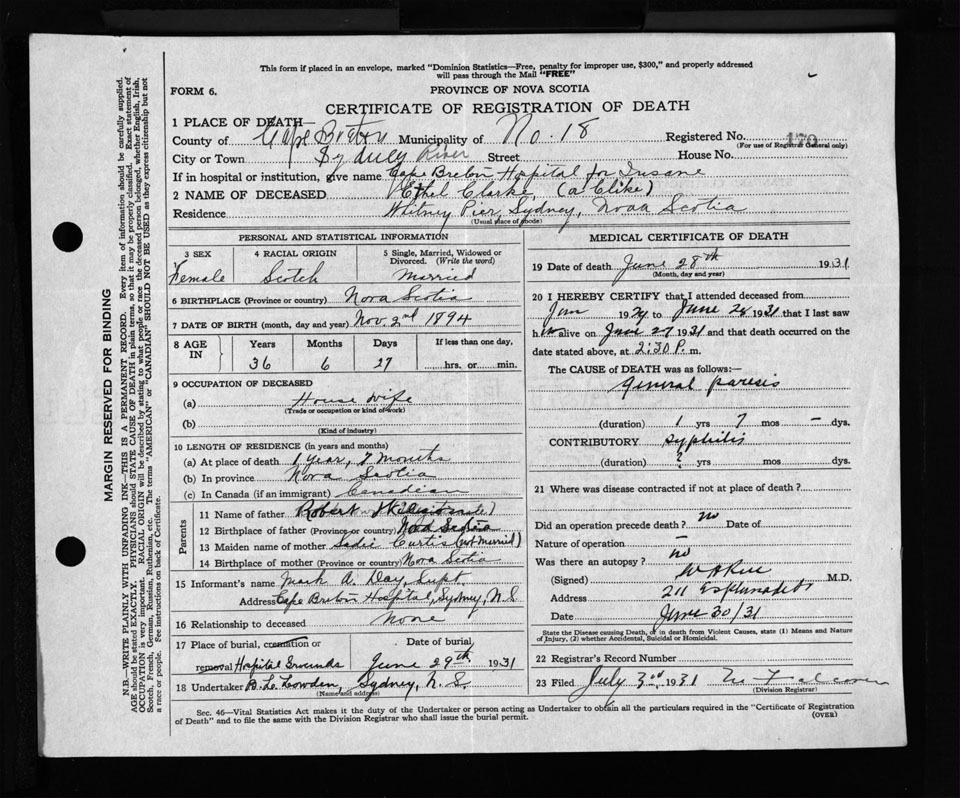 This form if placed in an envelope, marked "Dominion Statistics—Free, penalty for improper use, $300," and properly addressed
will pass through the Mail "FREE"
FORM 6.
PROVINCE OF NOVA SCOTIA
CERTIFICATE OF REGISTRATION OF DEATH
1 PLACE OF DEATH—
County of Cape Breton Municipality of No. 18 Registered No. 170
(For use of Registrar General only)
City or Town Sydney River Street House No.
If in hospital or institution, give name Cape Breton Hospital for Insane
2 NAME OF DECEASED Ethel Clarke (a Clike)
Residence Whitney Pier, Sydney, Nova Scotia
(Usual place of abode)
PERSONAL AND STATISTICAL INFORMATION
3 SEX 4 RACIAL ORIGIN 5 Single, Married, Widowed or
Divorced. (Write the word)
Female Scotch Married
6 BIRTHPLACE (Province or country) Nova Scotia
7 DATE OF BIRTH (month, day and year) Nov. 2nd 1894
8 AGE IN Years Months Days If less than one day,
36 6 27 hrs. or min.
9 OCCUPATION OF DECEASED
(a) House wife
(Trade or occupation or kind of work)
(b)
(Kind of industry)
10 LENGTH OF RESIDENCE (in years and months)
(a) At place of death 1 year, 7 months
(b) In province Nova Scotia
(c) In Canada (if an immigrant) Canadian
Parents
11 Name of father Robert
12 Birthplace of father (Province or country) Nova Scotia
13 Maiden name of mother Sadie Curtis (not married)
14 Birthplace of mother (Province or country) Nova Scotia
15 Informant's name Mark A. Day, Supt.
Address Cape Breton Hospital, Sydney, N.S
16 Relationship to deceased None
17 Place of burial, cremation or Date of burial,
removal Hospital Grounds June 29th 1931
18 Undertaker B. L. Lowden, Sydney, N.S.
(Name and address)
MEDICAL CERTIFICATE OF DEATH
19 Date of death June 28th 1931
(Month, day and year)
20 I HEREBY CERTIFY that I attended deceased from
Jan 1929 to June 28 1931 that I last saw
h alive on June 27 1931 and that death occurred on the
date stated above, at 2:30 P. m.
The CAUSE of DEATH was as follows:—
General paresis
(duration) 1 yrs 7 mos — dys.
CONTRIBUTORY Syphilis
(duration) ? yrs mos dys.
21 Where was disease contracted if not at place of death?
Did an operation precede death? no Date of
Nature of operation —
Was there an autopsy? no
(Signed) M.D.
Address 211 Esplanade
Date June 30/31
State the Disease causing Death, or in death from Violent Causes, state (1) Means and Nature
of Injury, (2) whether Accidental, Suicidal or Homicidal.
22 Registrar's Record Number
23 Filed July 3rd 1931
(Division Registrar)
Sec. 46—Vital Statistics Act makes it the duty of the Undertaker or person acting as Undertaker to obtain all the particulars required in the "Certificate of Registration
of Death" and to file the same with the Division Registrar who shall issue the burial permit.
(OVER)
MARGIN RESERVED FOR BINDING
N.B.—WRITE PLAINLY WITH UNFADING INK—THIS IS A PERMANENT RECORD. Every item of information should be carefully supplied.
AGE should be stated EXACTLY. PHYSICIANS should STATE CAUSE OF DEATH in plain terms, so that it may be properly classified. Exact statement of
OCCUPATION is very important. RACIAL ORIGIN will be described by stating to what people or race the deceased person belonged, whether English, Irish,
Scotch, French, German, Russian, Ruthenian, etc. The terms "AMERICAN" or "CANADIAN" SHOULD NOT BE USED as they express citizenship but not
a race or people. See instructions on back of Certificate.